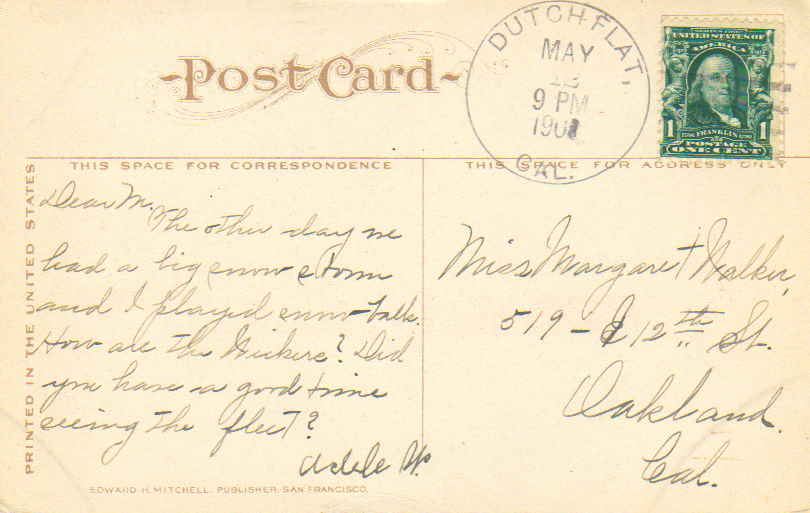 Post Card
DUTCH FLAT,
MAY
9 PM
CAL.
SERIES 1902
UNITED STATES OF
AMERICA
1 FRANKLIN 1
POSTAGE
ONE CENT
PRINTED IN THE UNITED STATES
THIS SPACE FOR CORRESPONDENCE
THIS SPACE FOR ADDRESS ONLY
Dear M.
The other day we
had a big snow storm
and I played snow-balls.
How are the Wickers? Did
you have a good time
seeing the fleet?
Adele W.
Miss Margaret Walker,
519 - E 12th St.
Oakland.
Cal.
EDWARD H. MITCHELL, PUBLISHER, SAN FRANCISCO.